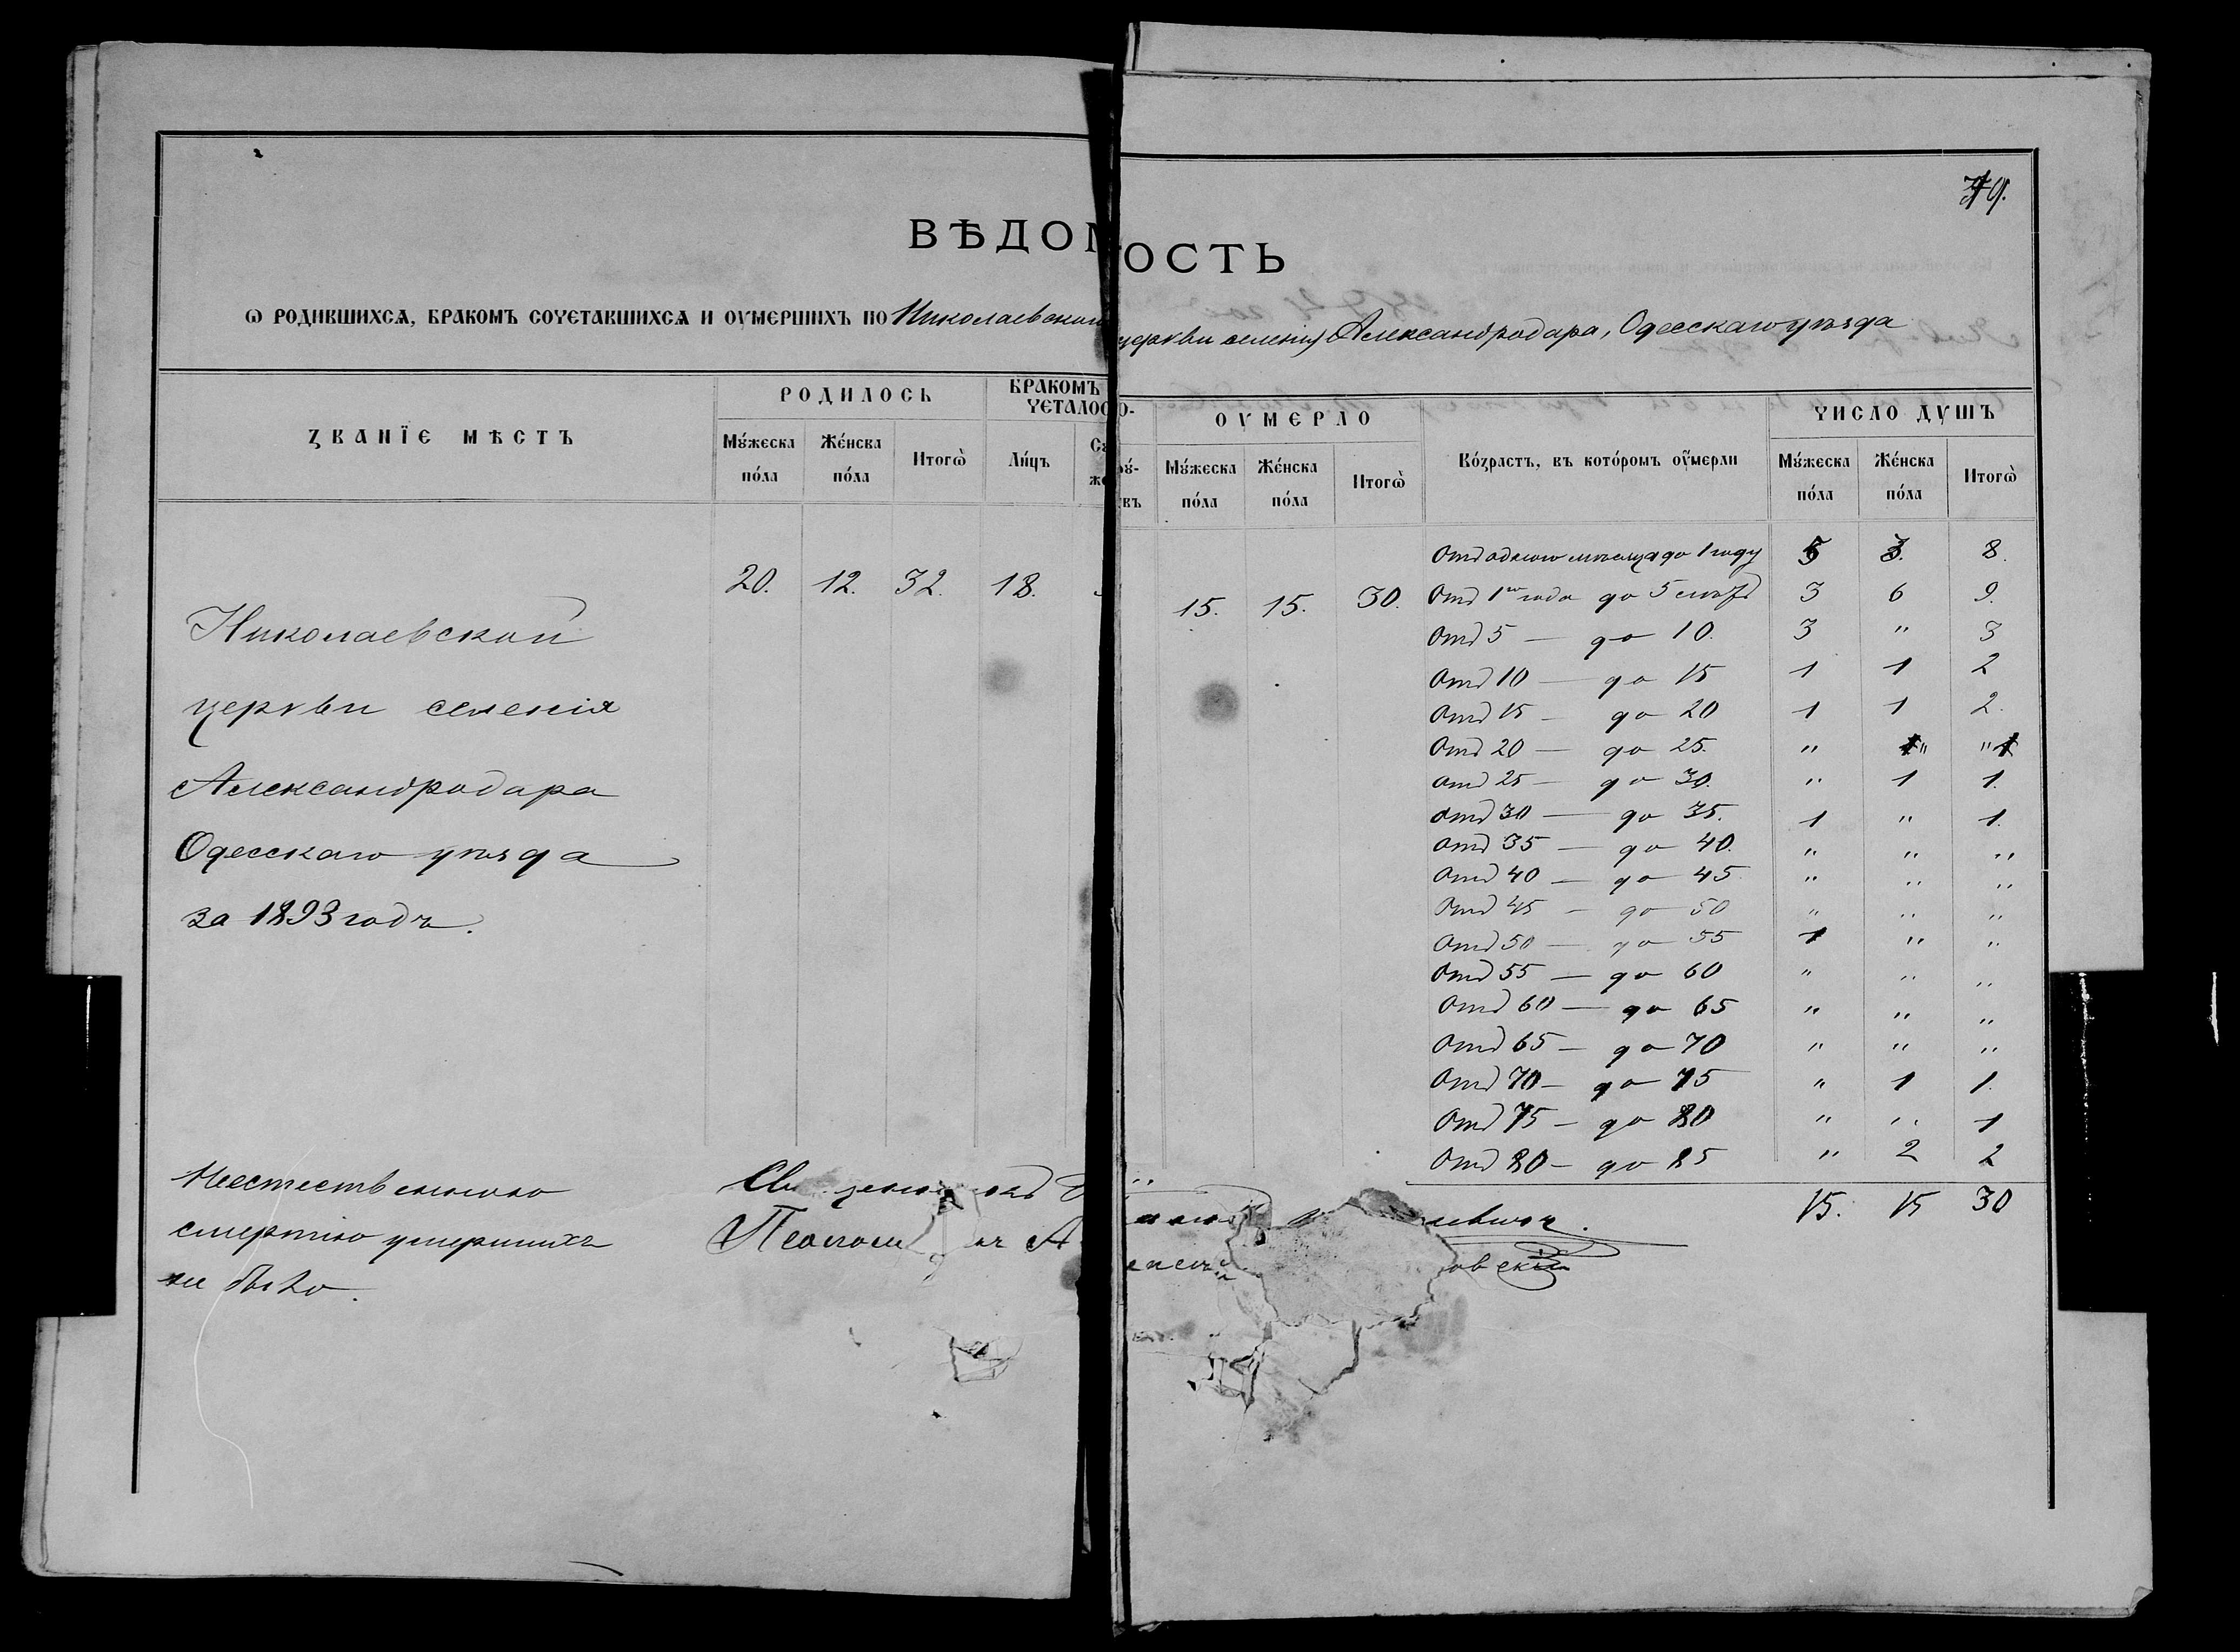 79.
ВѢДОМОСТЬ
Ѡ РОДИВШИХСѦ, БРАКОМЪ СОЧЕТАВШИХСѦ И ОУМЕРШИХЪ ПО Николаевской церкви селенія Александродара, Одесскаго уѣзда
ЗВАНЇЕ МѢСТЪ
РОДИЛОСЬ
Мꙋ́жеска пóла
Жéнска пóла
Итогѡ̀
БРАКОМЪ
ЧЕТАЛОСО-
Ли́цъ
ОУМЕРЛО
Мꙋ́жеска пóла
Жéнска пóла
Итогѡ̀
Вóзрастъ, въ котóромъ оу҆мерли
ЧИСЛО ДУШЪ
Мꙋ́жеска пóла
Жéнска пóла
Итогѡ̀
Николаевской
церкви селенія
Александродара
Одесскаго уѣзда
за 1893 годъ.
20. 12. 32. 18.
15. 15. 30.
Отъ одного мѣсяца до 1 году 5 3. 8.
Отъ 1го года до 5 лѣтъ 3 6 9.
Отъ 5 — до 10. 3 " 3
Отъ 10 — до 15 1 1 2
Отъ 15 — до 20 1 1 2.
Отъ 20 — до 25. " " "
Отъ 25 — до 30. " 1 1.
Отъ 30 — до 35. 1 " 1.
Отъ 35 — до 40. " " "
Отъ 40 — до 45 " " "
Отъ 45 — до 50 " " "
Отъ 50 — до 55 1 " "
Отъ 55 — до 60 " " "
Отъ 60 — до 65 " " "
Отъ 65 — до 70 " " "
Отъ 70 — до 75 " 1 1.
Отъ 75 — до 80 " " 1
Отъ 80 — до 85 " 2 2
15. 15 30
Неестественною
смертію умершихъ
не было.